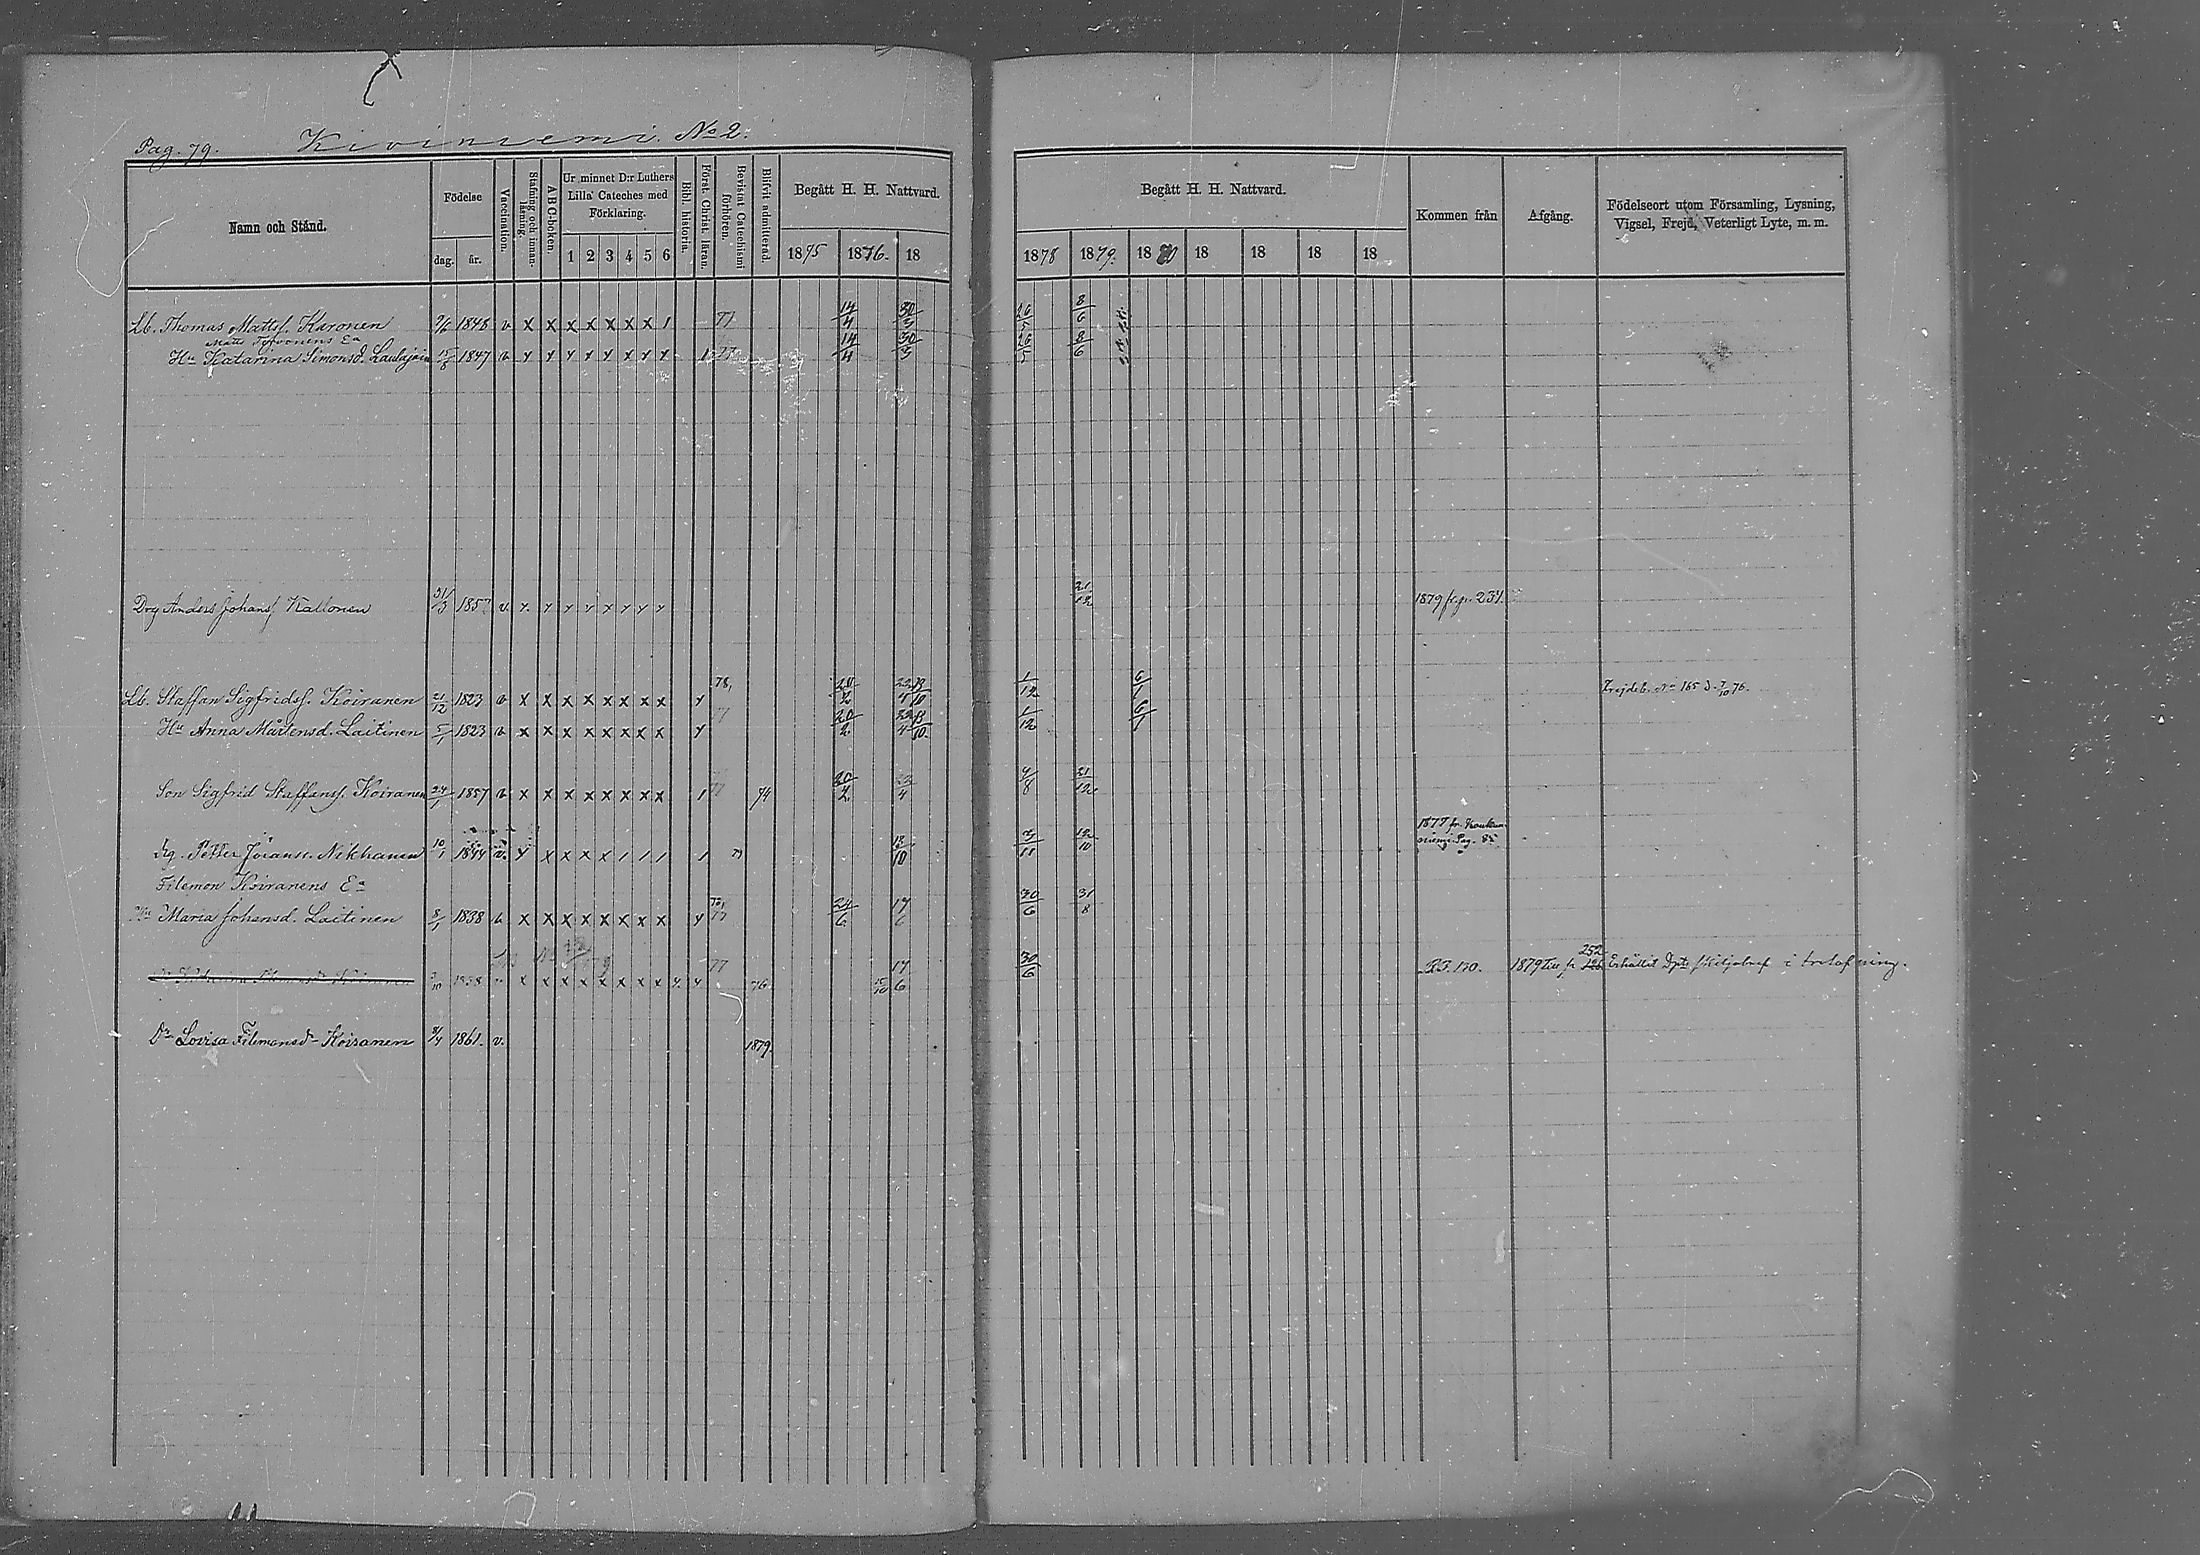 Pag. 79. Kiviniemi. No 2.
Namn och Stånd.
Födelse
dag. år.
Vaccination.
Stafning och innanläsning.
ABC-boken.
Ur minnet D:r Luthers Lilla Cateches med Förklaring.
1 2 3 4 5 6
Bibl. historia.
Först. Christ. läran.
Bevistat Catechismi förhören.
Blifvit admitterad.
Begått H. H. Nattvard.
1875 1876. 18
Begått H. H. Nattvard.
1878 1879. 1880 18 18 18 18
Kommen från
Afgång.
Födelseort utom Församling, Lysning, Vigsel, Frejd, Veterligt Lyte, m. m.
Lb. Thomas Mattss. Karonen 1848 v x x x x x x x 1 77 14/4 30/3 26/5 8/6
Hu Katarina Simonsd. 1847 v 14/4 30/3 26/5 8/6
Drg Anders Johanss. Kallonen 31/3 1857 v. 21/12 1879 fr. p. 237.
Lb. Staffan Sigfridss. Koiranen 21/12 1823 v x x x x x x x x 78, 20/2 1/12 6/1 Frejdeb. No 165 d. 7/10 76.
Hu Anna Mårtensd. Laitinen 5/1 1823 v x x x x x x x x 77 20/2 1/12 6/1
Son Sigfrid Staffanss. Koiranen 24/1 1857 v x x x x x x x x 1 77 74 20/2 23/4 4/8 21/12
Petter Jöranss. Nikkanen 10/1 1844 v. 1 13/10 12/10 Pag. 85
Filemon Koiranens Ea
Maria Johansd. Laitinen 8/1 1838 v x x x x x x x x 77 24/6 17/6 30/6 31/8
1858 77 76 17/6 30/6 170. 1879 Till p. 252 Erhållit skiljobref i trolofning.
Dr Lovisa Filemonsdr Koiranen 1861. v. 1879.